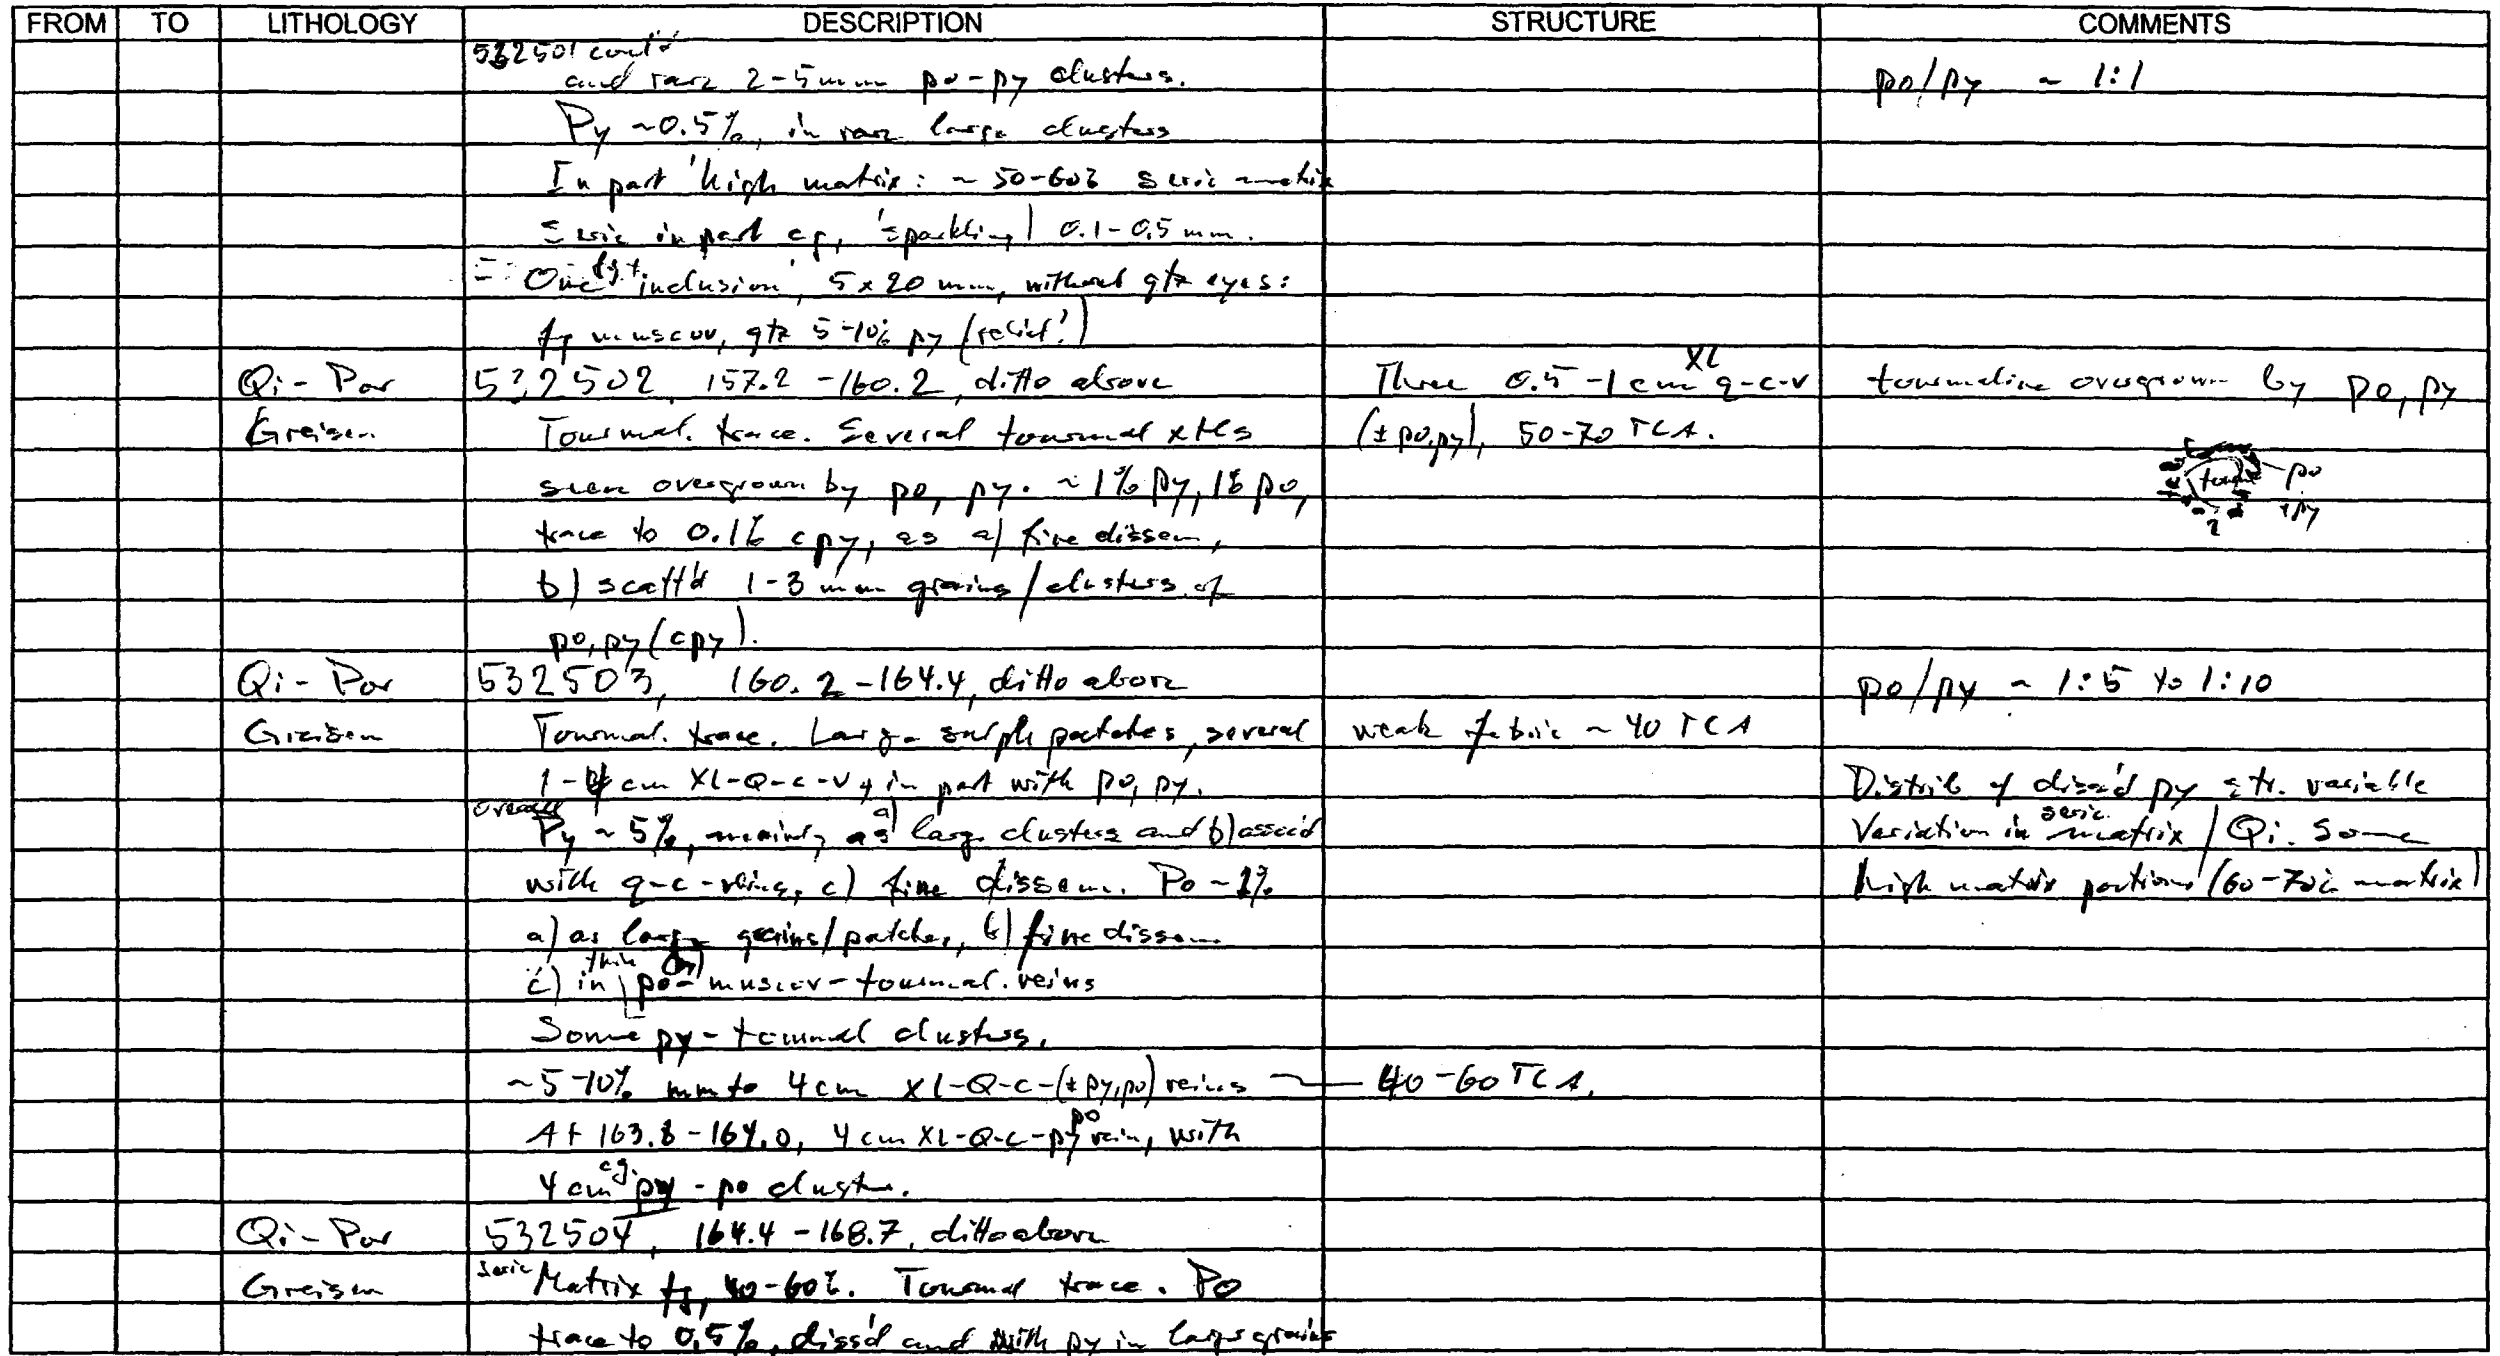 FROM TO LITHOLOGY DESCRIPTION STRUCTURE COMMENTS
532501 cont'd
and rare 2-5mm po-py clusters. po/py ~ 1:1
Py ~0.5%, in rare large clusters
In part 'high matrix: ~ 50-60% seric matrix
Seric in part cg, 'sparkling' 0.1-0.5 mm.
One fg inclusion, 5x20 mm, without qtz eyes:
fg muscov, qtz 5-10% py (relict?)
Qi-Por 532502, 157.2-160.2, ditto above Three 0.5-1cm XL q-c-v tourmaline overgrown by po, py
Greisen Tourmal. trace. Several tourmal xtls (±po,py), 50-70 TCA.
seen overgrown by po, py. ~1% py, 1% po, tourm po
trace to 0.1% cpy, as a) fine dissem, +py
b) scatt'd 1-3 mm grains/clusters of
po, py (cpy).
Qi-Por 532503, 160.2-164.4, ditto above po/py ~ 1:5 to 1:10
Greisen Tourmal. trace. Large sulph patches, several weak fabric ~ 40 TCA
1-4 cm XL-Q-c-v, in part with po, py. Distrib of diss'd py str. variable
overall Py ~ 5%, mainly as a) large clusters and b) assoc'd Variation in seric matrix / Qi. Some
with q-c-veins, c) fine dissem. Po ~1% high matrix portions (60-70% matrix)
a) as large grains/patches, b) fine dissem.
c) in thin po-muscov-tourmal. veins
Some py-tourmal clusters.
~5-10% mm to 4cm XL-Q-c-(±py,po) veins ~ 40-60 TCA.
At 163.8-164.0, 4cm XL-Q-c-py po vein, with
4cm cg. py-po cluster.
Qi-Por 532504, 164.4-168.7, ditto above
Greisen seric Matrix fg, 40-60%. Tourmal trace. Po
trace to 0.5%, diss'd and with py in large grains